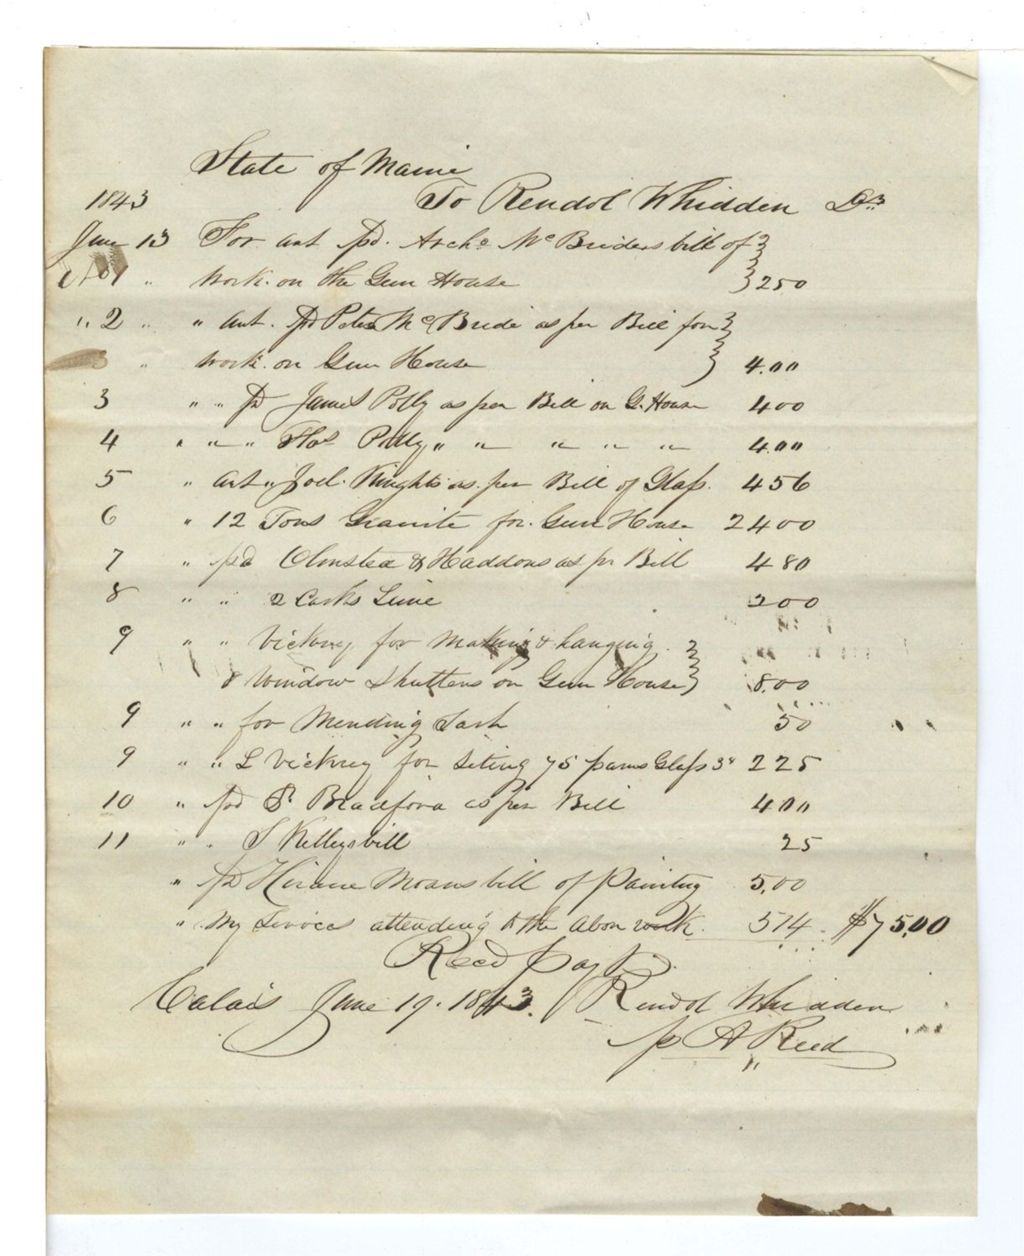 State of Maine
1843 To Rendol Whidden Dr
June 13 For amt pd. Archd McBrides bill of
No 1 " work on the Gun House 250
" 2 " " amt. pd Peter McBride as per Bill for
" work on Gun House 4.00
3 " " pd James Polly as per Bill on G. House 400
4 " " " Thos Polly " " " " " 4.00
5 " amt " Joel Knights as per Bill of Glass. 456
6 " 12 Tons Granite for Gun House 2400
7 " pd Olmsted & Haddons as pr Bill 480
8 " " 2 Casks Lime 200
9 " " Vickrey for Making & hanging
8 Window Shutters on Gun House 8.00
9 " " for Mending Sash 50
9 " " L Vickrey for Seting 75 panes Glass 3c 225
10 " pd S. Bradford as per Bill 4.00
11 " " S Kelleys bill 25
" pd Hiram Moans bill of Painting 5.00
" My Services attending to the above work. 514. $75.00
Recd Pay
Calais June 19. 1843. Rendol Whidden
pr A Reed